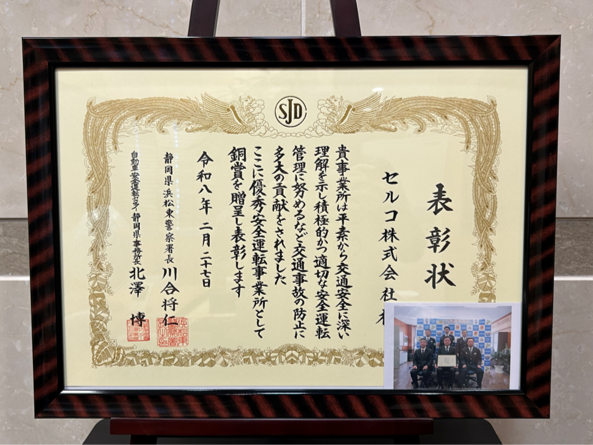 SJD
表彰状
セルコ株式会社
貴事業所は平素から交通安全に深い
理解を示し積極的かつ適切な安全運転
管理に努めるなど交通事故の防止に
多大の貢献をされました
ここに優秀安全運転事業所として
銅賞を贈呈し表彰します
令和八年二月二十七日
静岡県浜松東警察署長 川合将仁
自動車安全運転センター静岡県事務所長 北澤 博